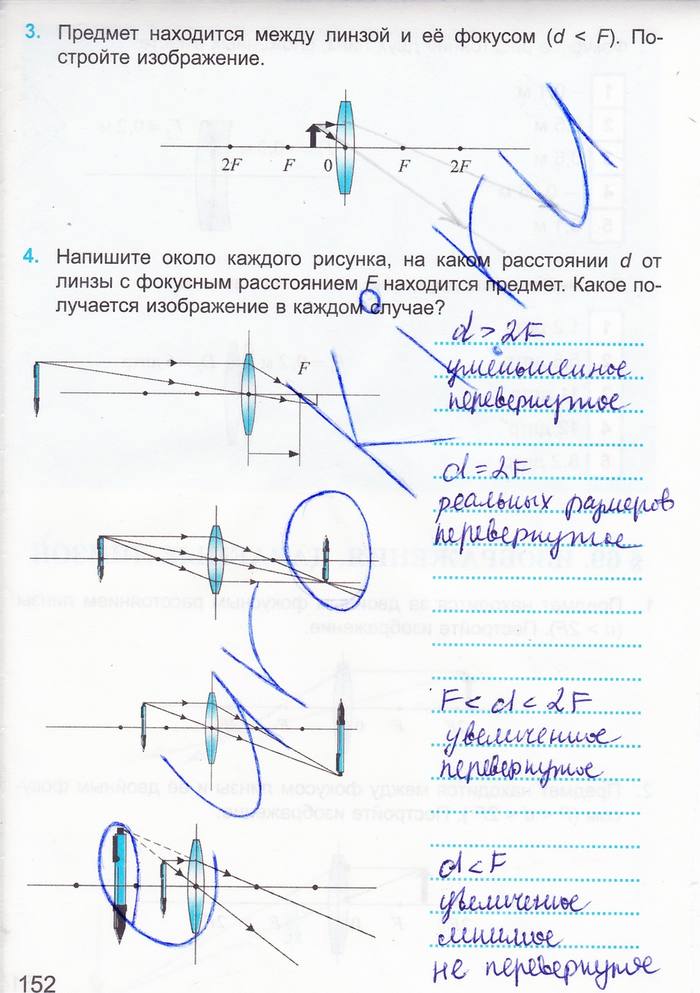 3. Предмет находится между линзой и её фокусом (d < F). По-
стройте изображение.
2F F 0 F 2F
4. Напишите около каждого рисунка, на каком расстоянии d от
линзы с фокусным расстоянием F находится предмет. Какое по-
лучается изображение в каждом случае?
d > 2F
уменьшенное
перевернутое
F
d = 2F
реальных размеров
перевернутое
F < d < 2F
увеличенное
перевернутое
d < F
увеличенное
мнимое
не перевернутое
152